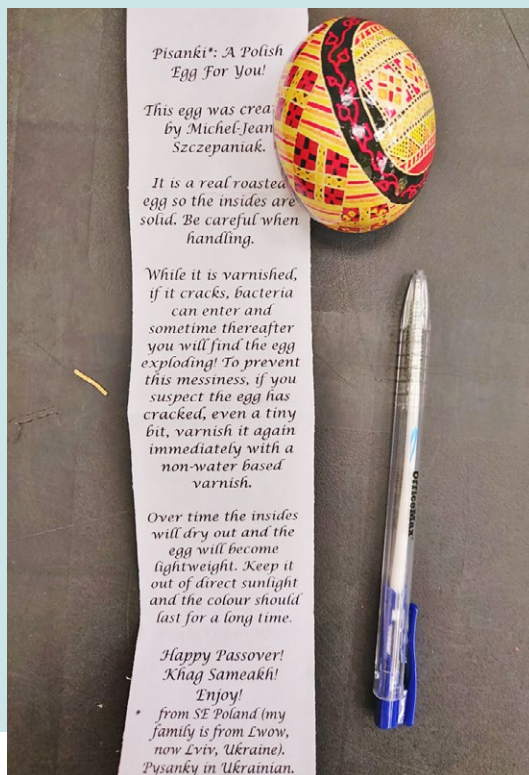 Pisanki*: A Polish
Egg For You!
This egg was crea
by Michel-Jean
Szczepaniak.
It is a real roasted
egg so the insides are
solid. Be careful when
handling.
While it is varnished,
if it cracks, bacteria
can enter and
sometime thereafter
you will find the egg
exploding! To prevent
this messiness, if you
suspect the egg has
cracked, even a tiny
bit, varnish it again
immediately with a
non-water based
varnish.
Over time the insides
will dry out and the
egg will become
lightweight. Keep it
out of direct sunlight
and the colour should
last for a long time.
Happy Passover!
Khag Sameakh!
Enjoy!
* from SE Poland (my
family is from Lwow,
now Lviv, Ukraine).
Pysanky in Ukrainian.
OfficeMax